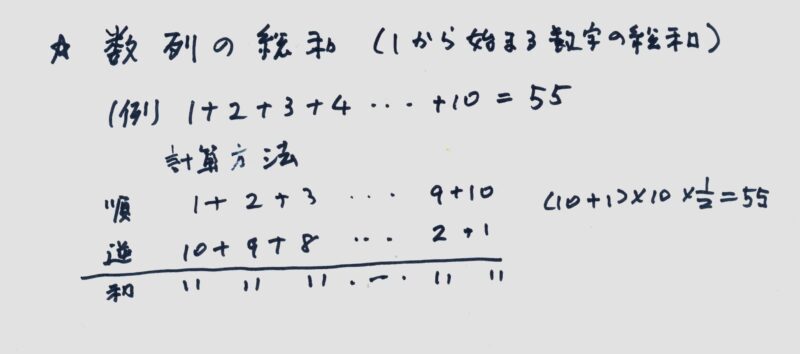 ☆ 数列の総和 (1から始まる数字の総和)
(例) 1+2+3+4 ... +10 = 55
計算方法
順 1+2+3 ... 9+10 (10+1)×10×1/2=55
逆 10+9+8 ... 2+1
和 11 11 11 ... 11 11